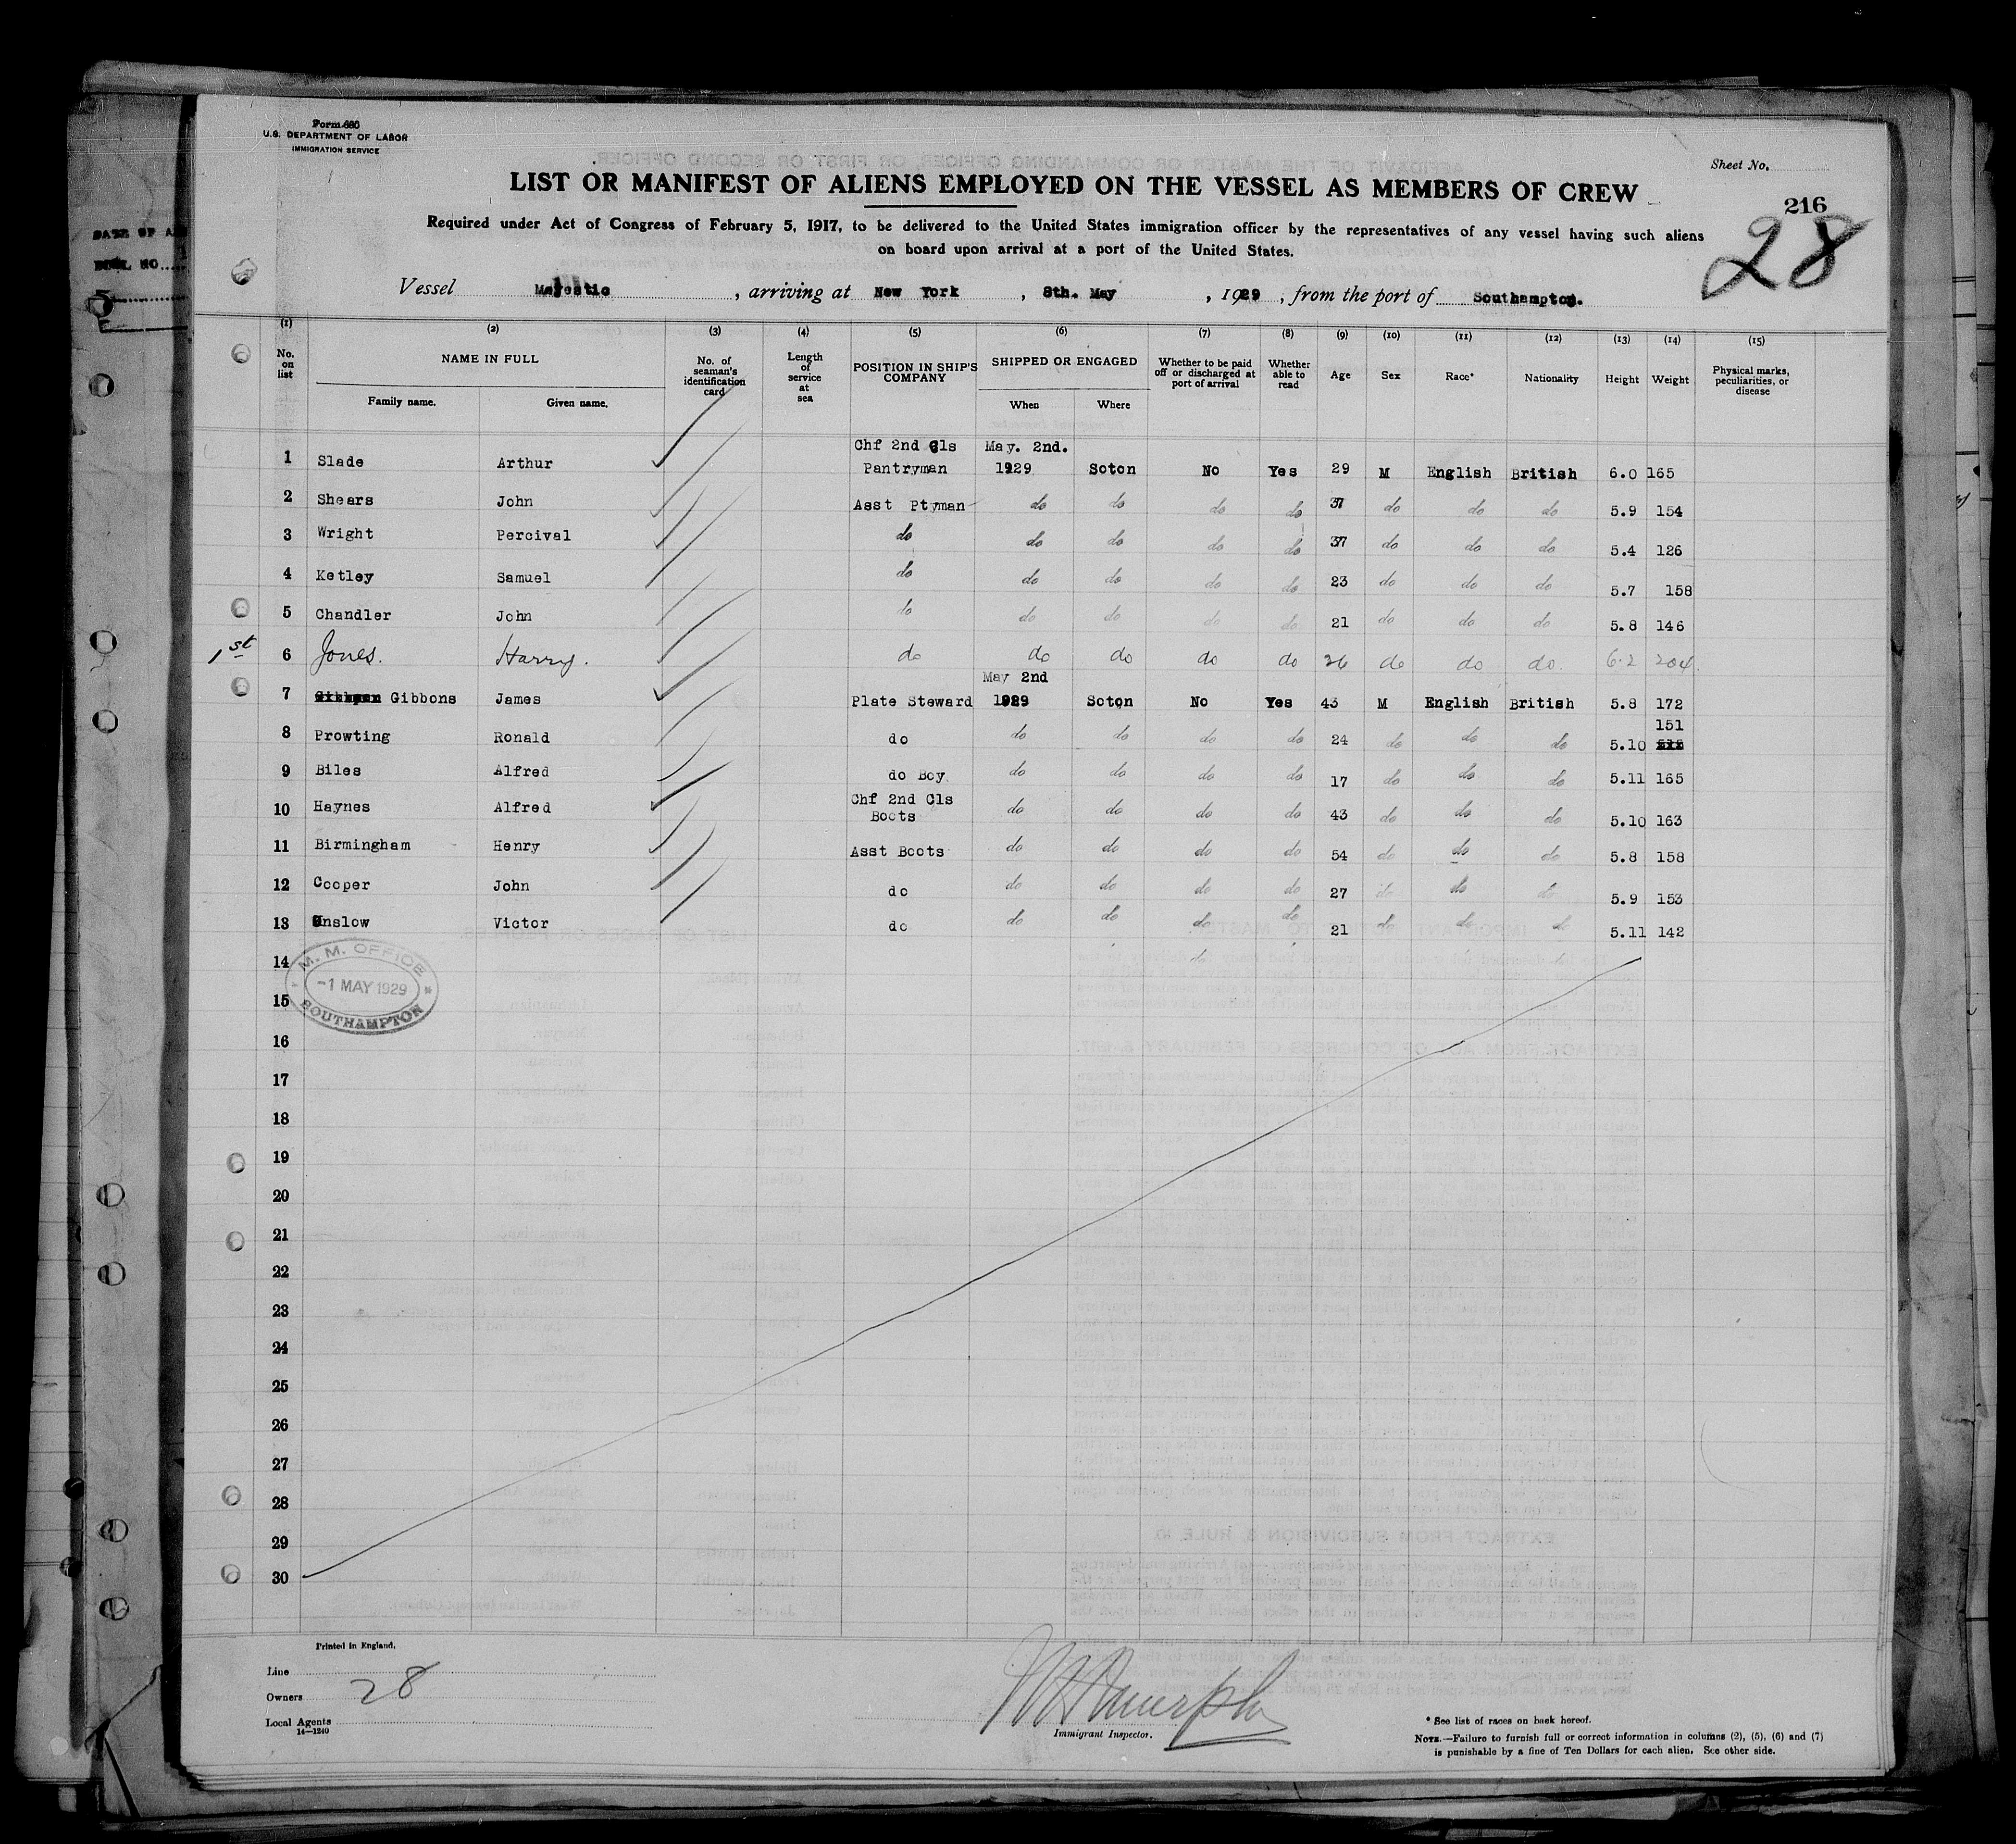 Form 680
U.S. DEPARTMENT OF LABOR
IMMIGRATION SERVICE
Sheet No.
LIST OR MANIFEST OF ALIENS EMPLOYED ON THE VESSEL AS MEMBERS OF CREW
216
28
Required under Act of Congress of February 5, 1917, to be delivered to the United States immigration officer by the representatives of any vessel having such aliens
on board upon arrival at a port of the United States.
Vessel Majestic, arriving at New York, 8th. May, 1929, from the port of Southampton.
(1) (2) (3) (4) (5) (6) (7) (8) (9) (10) (11) (12) (13) (14) (15)
No. on list NAME IN FULL Family name. Given name. No. of seaman's identification card Length of service at sea POSITION IN SHIP'S COMPANY SHIPPED OR ENGAGED When Where Whether to be paid off or discharged at port of arrival Whether able to read Age Sex Race* Nationality Height Weight Physical marks, peculiarities, or disease
1 Slade Arthur Chf 2nd Cls Pantryman May. 2nd. 1929 Soton No Yes 29 M English British 6.0 165
2 Shears John Asst Ptyman do do do do 37 do do do 5.9 154
3 Wright Percival do do do do do 37 do do do 5.4 126
4 Ketley Samuel do do do do do 23 do do do 5.7 158
5 Chandler John do do do do do 21 do do do 5.8 146
1st 6 Jones. Harry. do do do do do 26 do do do. 6.2 204.
7 Gibbons James Plate Steward May 2nd 1929 Soton No Yes 43 M English British 5.8 172
8 Prowting Ronald do do do do do 24 do do do 5.10 151
9 Biles Alfred do Boy do do do do 17 do do do 5.11 165
10 Haynes Alfred Chf 2nd Cls Boots do do do do 43 do do do 5.10 163
11 Birmingham Henry Asst Boots do do do do 54 do do do 5.8 158
12 Cooper John do do do do do 27 do do do 5.9 153
13 Onslow Victor do do do do do 21 do do do 5.11 142
14 do
M. M. OFFICE
-1 MAY 1929
SOUTHAMPTON
15
16
17
18
19
20
21
22
23
24
25
26
27
28
29
30
Printed in England.
Line
Owners 28
Local Agents
14—1240
Immigrant Inspector.
* See list of races on back hereof.
NOTE.—Failure to furnish full or correct information in columns (2), (5), (6) and (7)
is punishable by a fine of Ten Dollars for each alien. See other side.